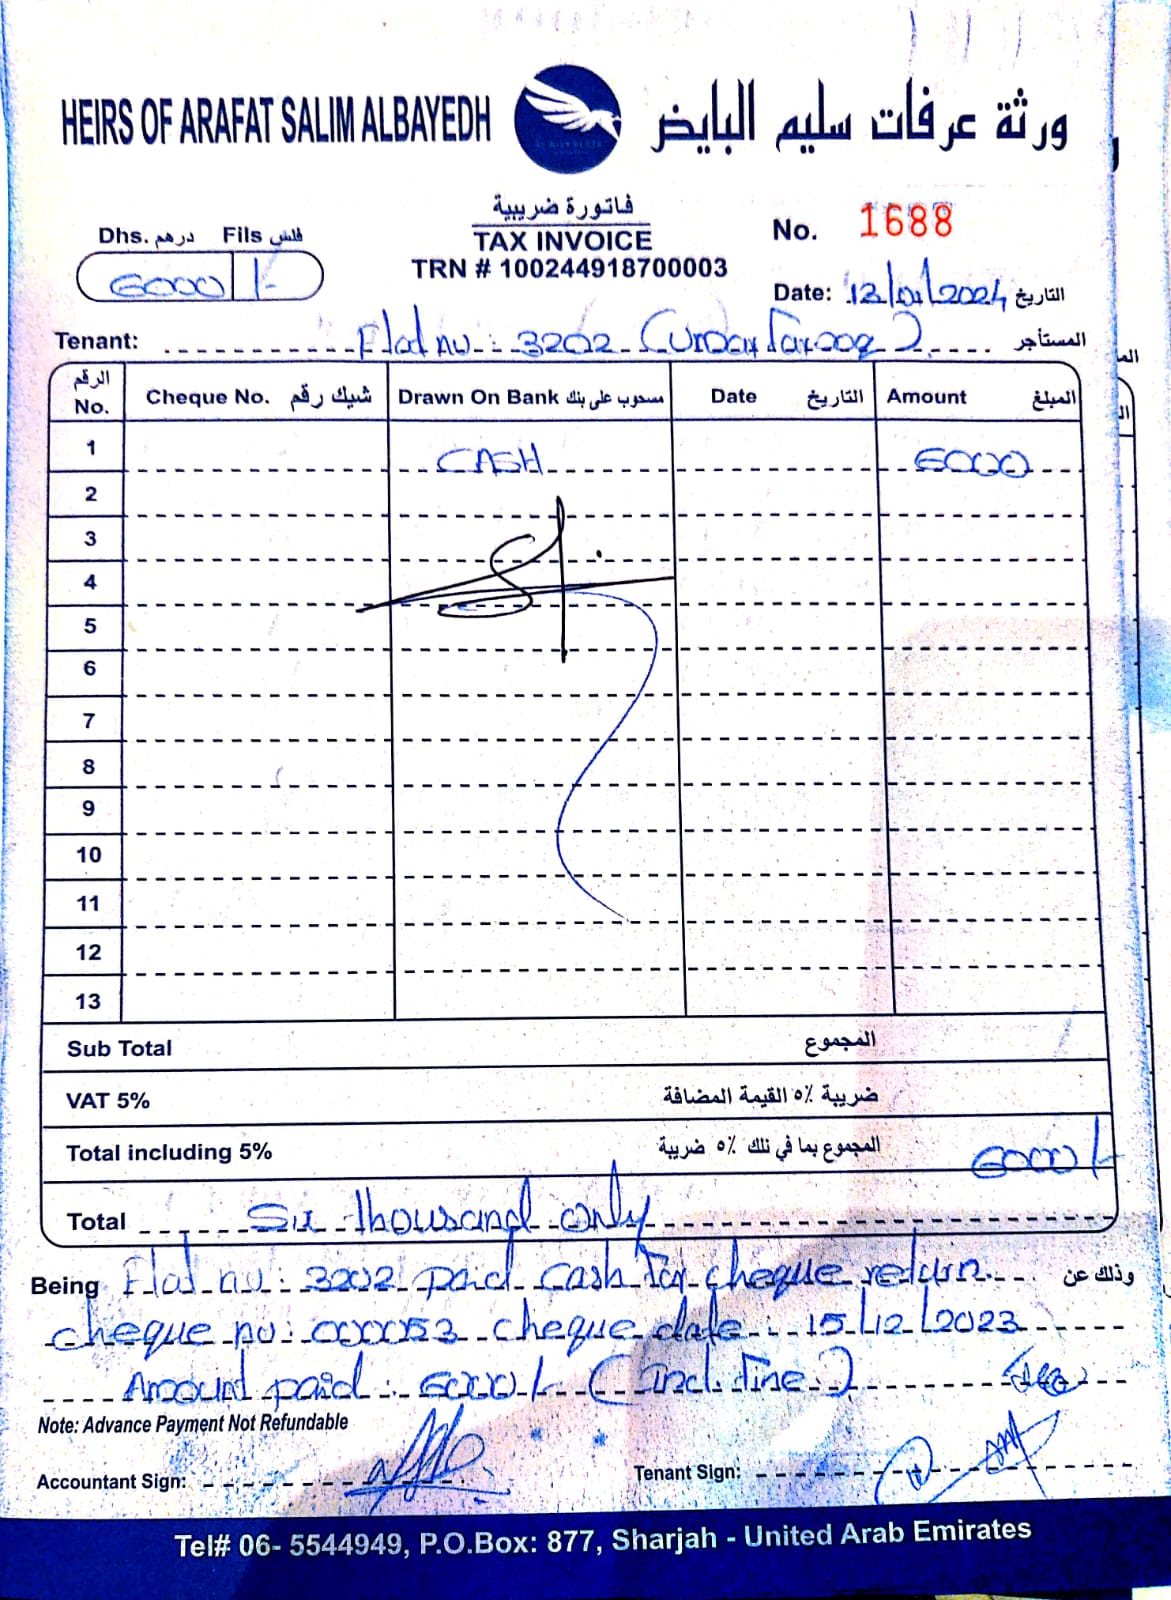 HEIRS OF ARAFAT SALIM ALBAYEDH
ورثة عرفات سليم البايض
فاتورة ضريبية
TAX INVOICE
TRN # 100244918700003
No. 1688
Dhs. درهم Fils فلس
6000 /-
Date: التاريخ
Tenant: Flat no : 3202 المستأجر
الرقم No. Cheque No. شيك رقم Drawn On Bank مسحوب على بنك Date التاريخ Amount المبلغ
1 CASH 6000
2
3
4
5
6
7
8
9
10
11
12
13
Sub Total المجموع
VAT 5% ضريبة ٥٪ القيمة المضافة
Total including 5% المجموع بما في ذلك ٥٪ ضريبة 6000/-
Total Six thousand only
Being Flat no : 3202 paid cash for cheque return وذلك عن
cheque no : 000053 cheque date : 15/12/2023
Amount paid : 6000/- (Incl. fine)
Note: Advance Payment Not Refundable
Accountant Sign: Tenant Sign:
Tel# 06- 5544949, P.O.Box: 877, Sharjah - United Arab Emirates